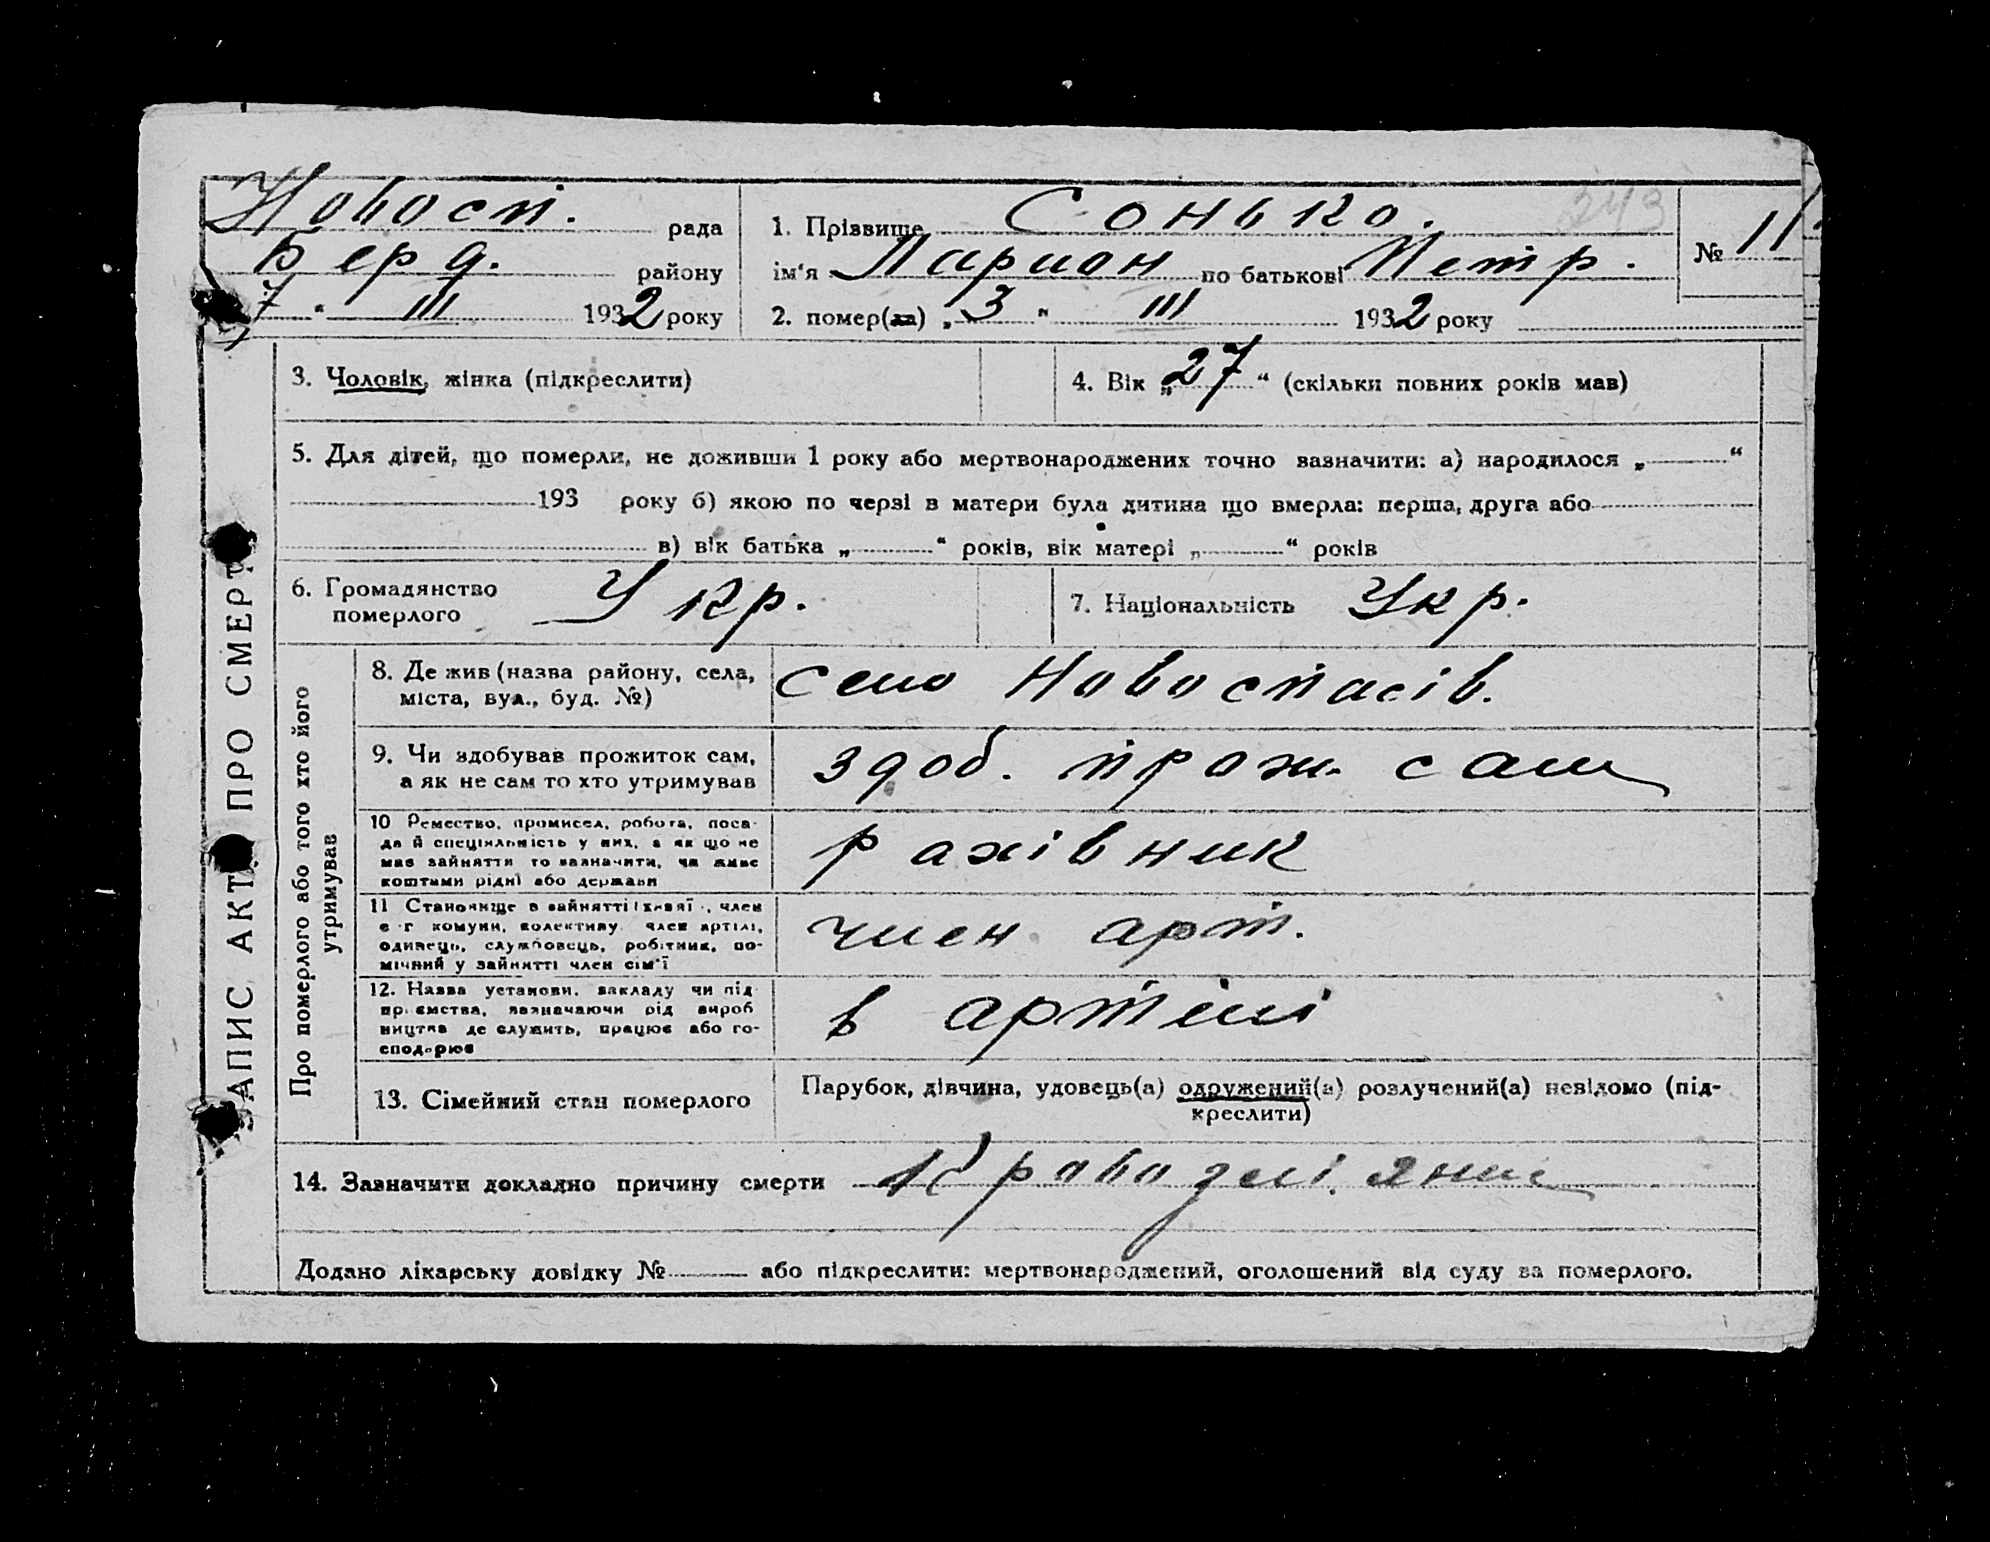 Новосп. рада
Берд. району
7 " III 1932 року
1. Прізвище Сонько. 243
ім'я Ларион по батькові Петр.
№ 11
2. помер(ла) „ 3 " III 1932 року
3. Чоловік, жінка (підкреслити)
4. Вік „ 27 “ (скільки повних років мав)
5. Для дітей, що померли, не доживши 1 року або мертвонароджених точно зазначити: а) народилося „ “
193 року б) якою по черзі в матери була дитина що вмерла: перша, друга або
в) вік батька „ “ років, вік матері „ “ років
6. Громадянство
померлого
Укр.
7. Національність Укр.
АПИС АКТ ПРО СМЕРТ
Про померлого або того хто його
утримував
8. Де жив (назва району, села,
міста, вул., буд. №)
село Новоспасів.
9. Чи здобував прожиток сам,
а як не сам то хто утримував
здоб. прож. сам
10 Ремество, промисел, робота, поса-
да й спеціяльність у них, а як що не
мав зайняття то зазначити, чи живе
коштами рідні або держави
рахівник
11 Становище в зайнятті (хазяї , член
с-г комуни, колективу член артілі,
одинець, службовець, робітник, по-
мічний у зайнятті член сім'ї
член арт.
12. Назва установи, закладу чи під-
приємства, зазначаючи рід вироб
ництва де служить, працює або го-
сподарює
в артілі
13. Сімейний стан померлого
Парубок, дівчина, удовець(а) одружений(а) розлучений(а) невідомо (під-
креслити)
14. Зазначити докладно причину смерти
Додано лікарську довідку № або підкреслити: мертвонароджений, оголошений від суду за померлого.